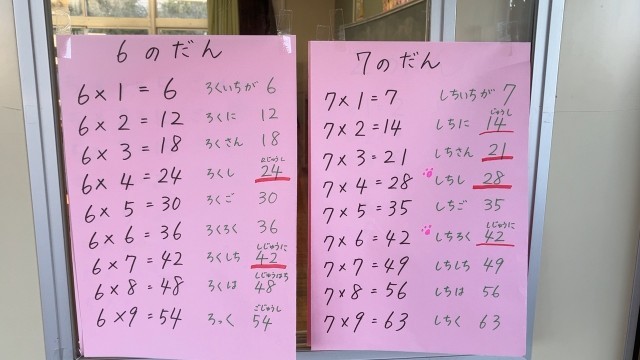 6のだん
6×1=6 ろくいちが 6
6×2=12 ろくに 12
6×3=18 ろくさん 18
にじゅうし
6×4=24 ろくし 24
6×5=30 ろくご 30
6×6=36 ろくろく 36
しじゅうに
6×7=42 ろくしち 42
しじゅうはち
6×8=48 ろくは 48
ごじゅうし
6×9=54 ろっく 54
7のだん
7×1=7 しちいちが 7
じゅうし
7×2=14 しちに 14
7×3=21 しちさん 21
7×4=28 しちし 28
7×5=35 しちご 35
しじゅうに
7×6=42 しちろく 42
7×7=49 しちしち 49
7×8=56 しちは 56
7×9=63 しちく 63